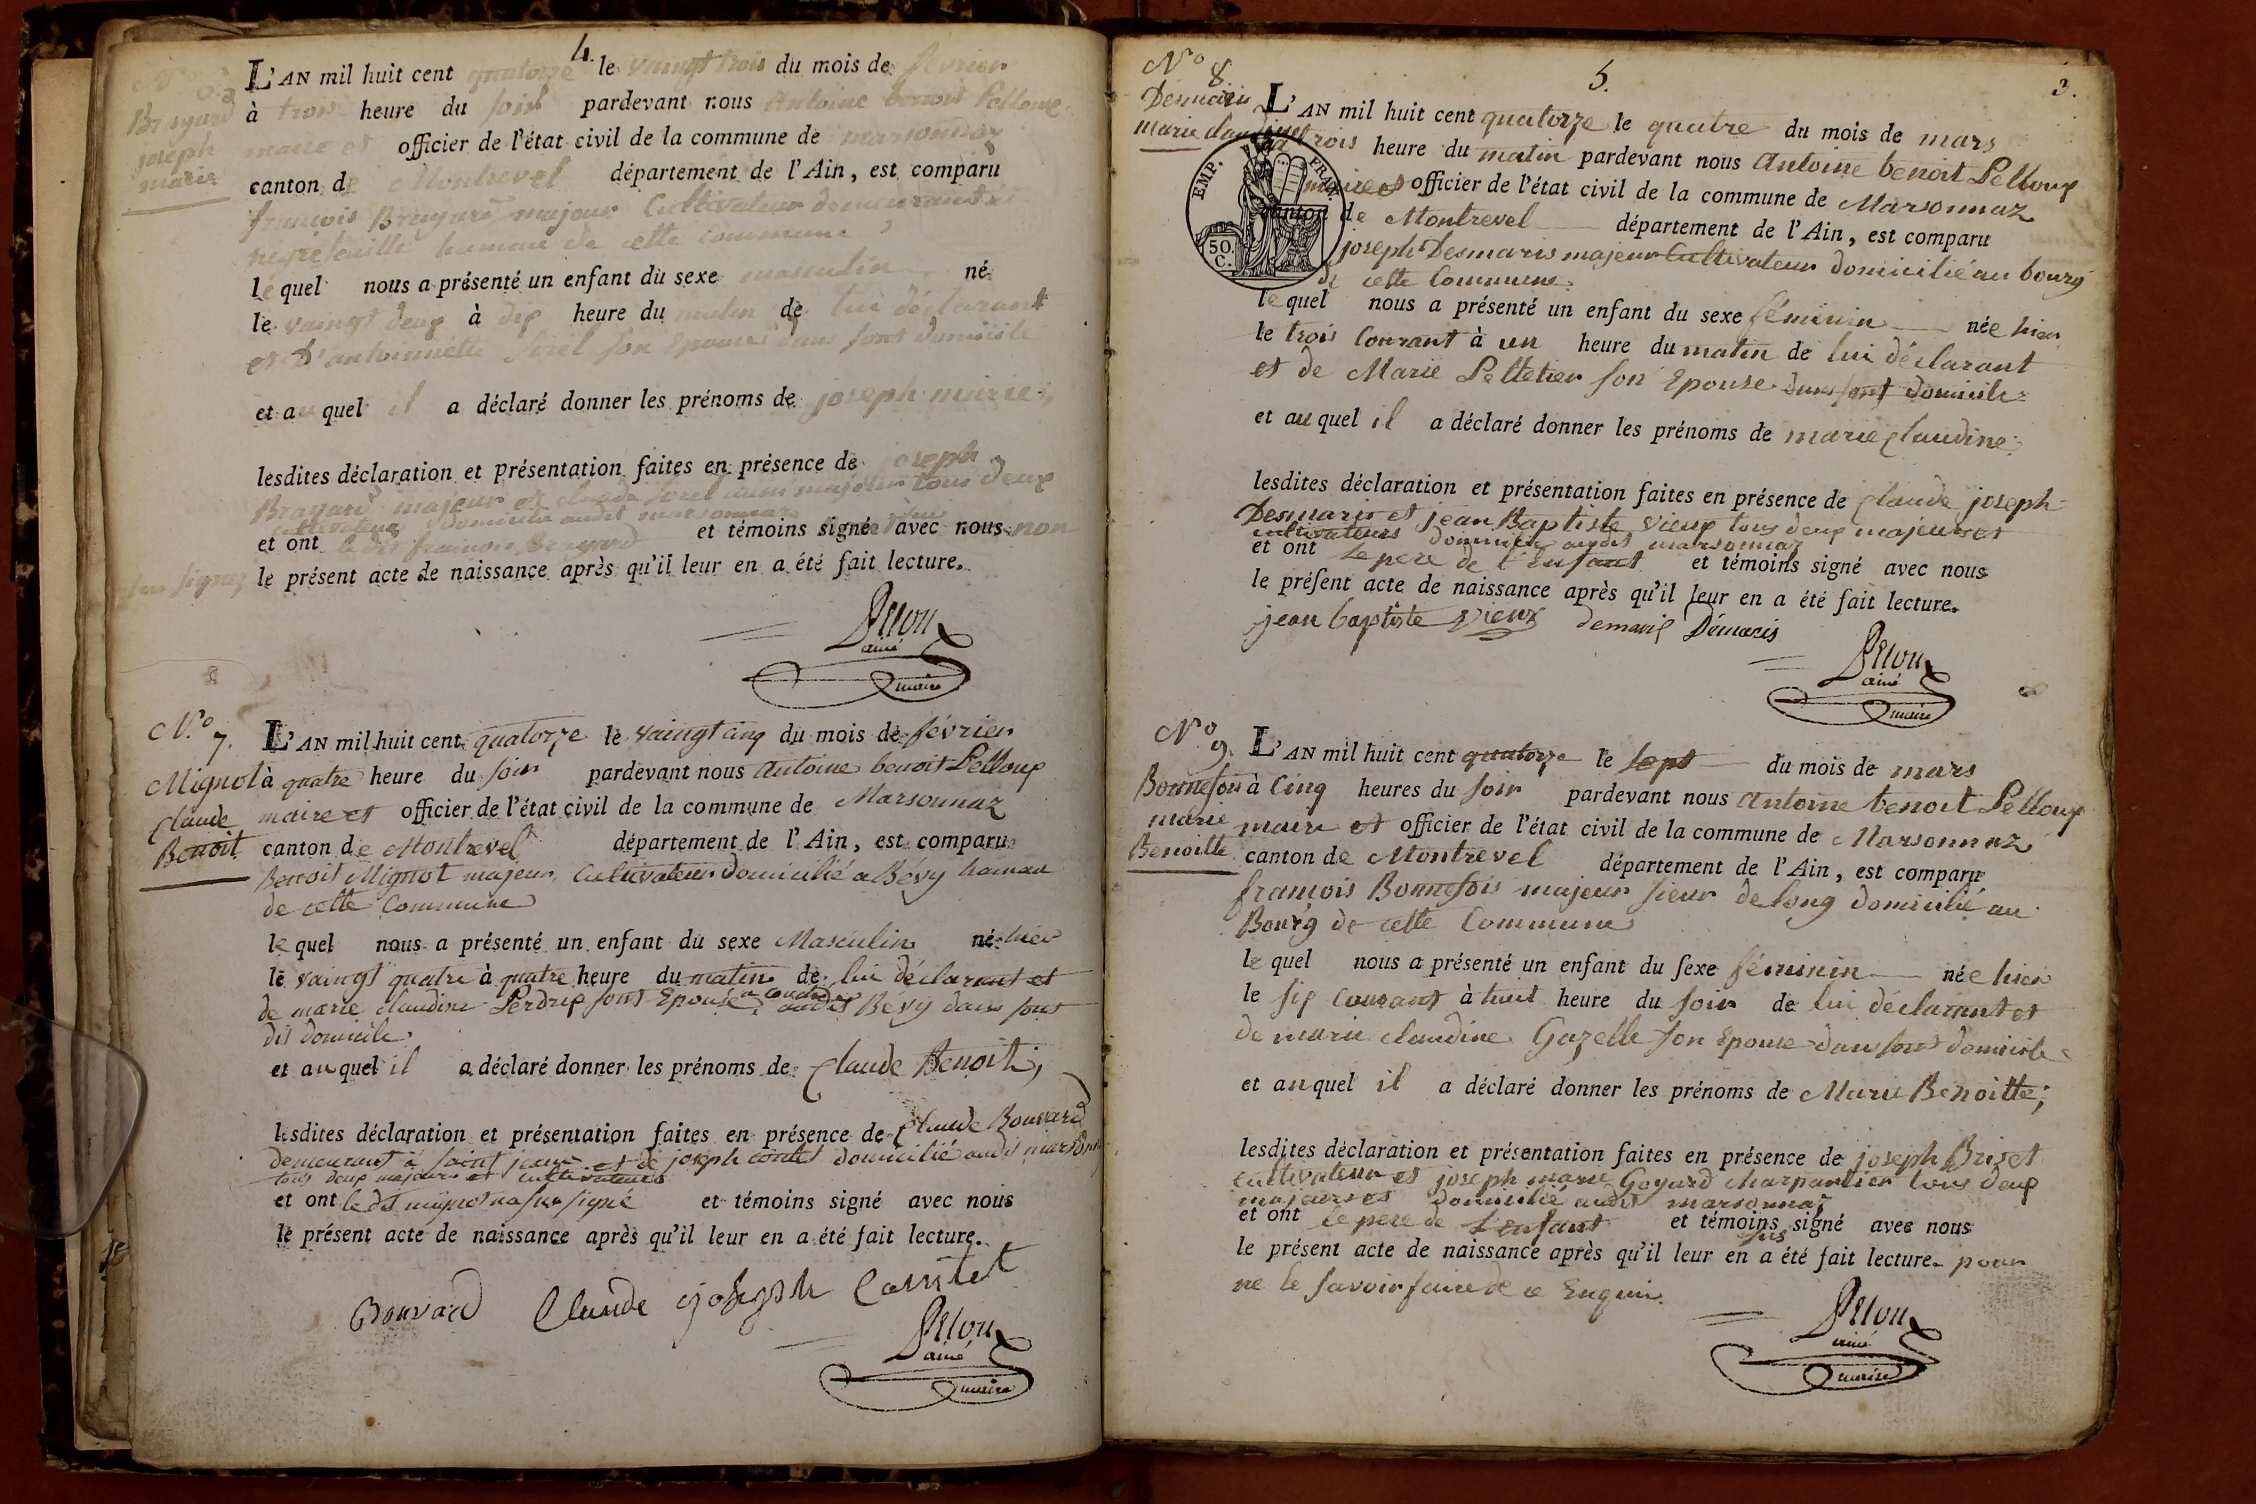 4.
N.o 6.
Brayard
joseph
marie
L'AN mil huit cent quatorze le vaingt trois du mois de février
à trois heure du soir pardevant nous Antoine benoit Pelloux
maire et officier de l'état civil de la commune de marsonnaz
canton de Montrevel département de l'Ain, est comparu
françois Brayard majeur Cultivateur demeurant à
hameau de cette commune
lequel nous a présenté un enfant du sexe masculin né
le vaingt deux à dix heure du matin de lui déclarant
et d'antoinnette Sorel son Epouse dans sont domicile
et au quel il a déclaré donner les prénoms de joseph marie;
lesdites déclaration et présentation faites en présence de joseph
Brayard majeur et claude Sorel aussi majeur tous deux
cultivateurs domicilié audit marsonnaz
et ont le dit francois Brayard et témoins signé avec nous non
le présent acte de naissance après qu'il leur en a été fait lecture.
Pelloux
ainé
maire
N.o 7.
Mignot
Claude
Benoit
L'AN mil huit cent quatorze le vaingt cinq du mois de février
à quatre heure du soir pardevant nous Antoine benoit Pelloux
maire et officier de l'état civil de la commune de Marsonnaz
canton de Montrevel département de l'Ain, est comparu
Benoit Mignot majeur, Cultivateur domicilié a Bévy hameau
de cette Commune
lequel nous a présenté un enfant du sexe Masculin né hier
le vaingt quatre à quatre heure du matin de lui déclarant et
de marie claudine Perdrix sont Epouse audit Bévy dans sont
dit domicile
et au quel il a déclaré donner les prénoms de Claude Benoit;
lesdites déclaration et présentation faites en présence de Claude Bouvard
demeurant à saint jean et de joseph contet domicilié audit marsonnaz
tous deux majeurs et cultivateurs
et ont le dit mignot na sut signé et témoins signé avec nous
le présent acte de naissance après qu'il leur en a été fait lecture.
Bouvard Claude joseph Contet
Pelloux
ainé
maire
5.
3.
N.o 8.
Desmaris
marie claudine
EMP. FRAN.
50 C.
L'AN mil huit cent quatorze le quatre du mois de mars
à trois heure du matin pardevant nous Antoine benoit Pelloux
maire et officier de l'état civil de la commune de Marsonnaz
canton de Montrevel département de l'Ain, est comparu
joseph Desmaris majeur Cultivateur domicilié au bourg
de cette Commune
lequel nous a présenté un enfant du sexe féminin née hier
le trois Courant à un heure du matin de lui déclarant
et de Marie Pelletier son Epouse dans sont domicile
et au quel il a déclaré donner les prénoms de marie claudine;
lesdites déclaration et présentation faites en présence de Claude joseph
Desmaris et jean Baptiste vieux tous deux majeurs et
cultivateurs domicilié audit marsonnaz
et ont le pere de l'Enfant et témoins signé avec nous
le présent acte de naissance après qu'il leur en a été fait lecture.
jean baptiste vieux demaris Démaris
Pelloux
ainé
maire
N.o 9.
Bonnefois
marie
Benoitte
L'AN mil huit cent quatorze le sept du mois de mars
à Cinq heures du soir pardevant nous Antoine benoit Pelloux
maire et officier de l'état civil de la commune de Marsonnaz
canton de Montrevel département de l'Ain, est comparu
françois Bonnefois majeur sieur de long domicilié au
Bourg de cette Commune
lequel nous a présenté un enfant du sexe féminin née hier
le six Courant à huit heure du soir de lui déclarant et
de marie claudine Gazelle son Epouse dans sont domicile
et au quel il a déclaré donner les prénoms de Marie Benoitte;
lesdites déclaration et présentation faites en présence de joseph Brizet
cultivateur et joseph marie Goyard charpantier tous deux
majeurs et domicilié audit marsonnaz
et ont le pere de l'Enfant et témoins signé avec nous
le présent acte de naissance après qu'il leur en a été fait lecture. pour
ne le savoir faire de ce Enquis.
Pelloux
ainé
maire